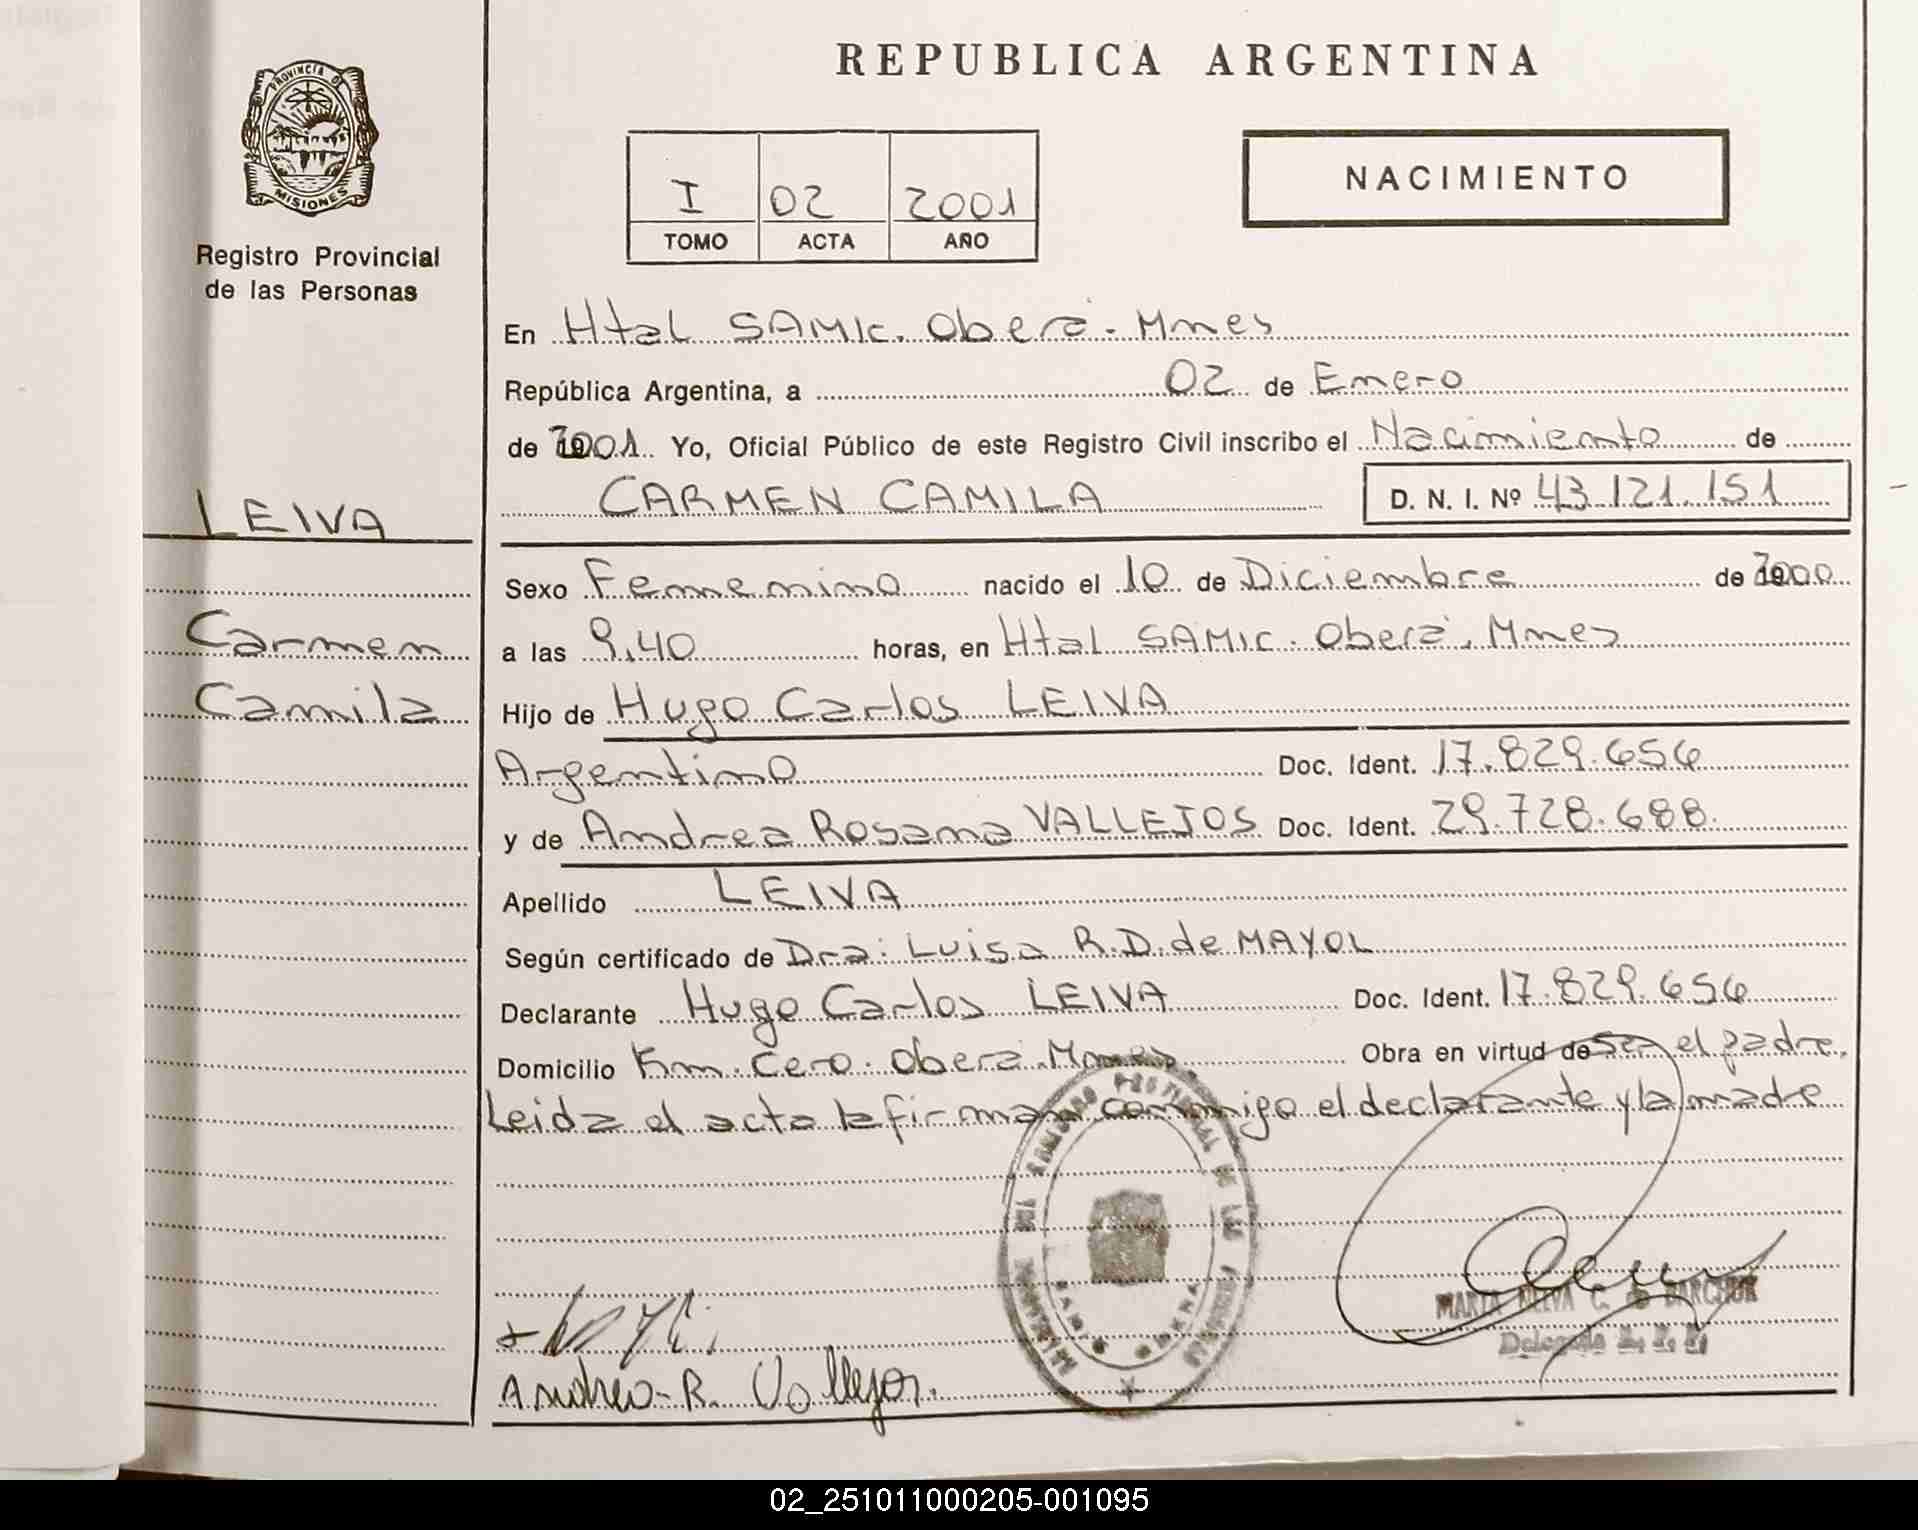 REPUBLICA ARGENTINA
PROVINCIA DE
MISIONES
Registro Provincial
de las Personas
I 02 2001
TOMO ACTA AÑO
NACIMIENTO
En Htal SAMIC. Oberá - Mnes
República Argentina, a 02 de Enero
de 2001. Yo, Oficial Público de este Registro Civil inscribo el Nacimiento de
CARMEN CAMILA D. N. I. Nº 43.121.151
LEIVA
Carmen
Camila
Sexo Femenino nacido el 10 de Diciembre de 2000
a las 9,40 horas, en Htal SAMIC. Oberá. Mnes
Hijo de Hugo Carlos LEIVA
Argentino Doc. Ident. 17.829.656
y de Andrea Rosana VALLEJOS Doc. Ident. 29.728.688.
Apellido LEIVA
Según certificado de Dra: Luisa R.D. de MAYOL
Declarante Hugo Carlos LEIVA Doc. Ident. 17.829.656
Domicilio Km. Cero. Oberá. Mnes Obra en virtud de ser el padre.
Leida el acta la firman conmigo el declarante y la madre
MARTA C. de BARCHUK
Delegada R. P. P.
Andrea R. Vallejos.
02_251011000205-001095